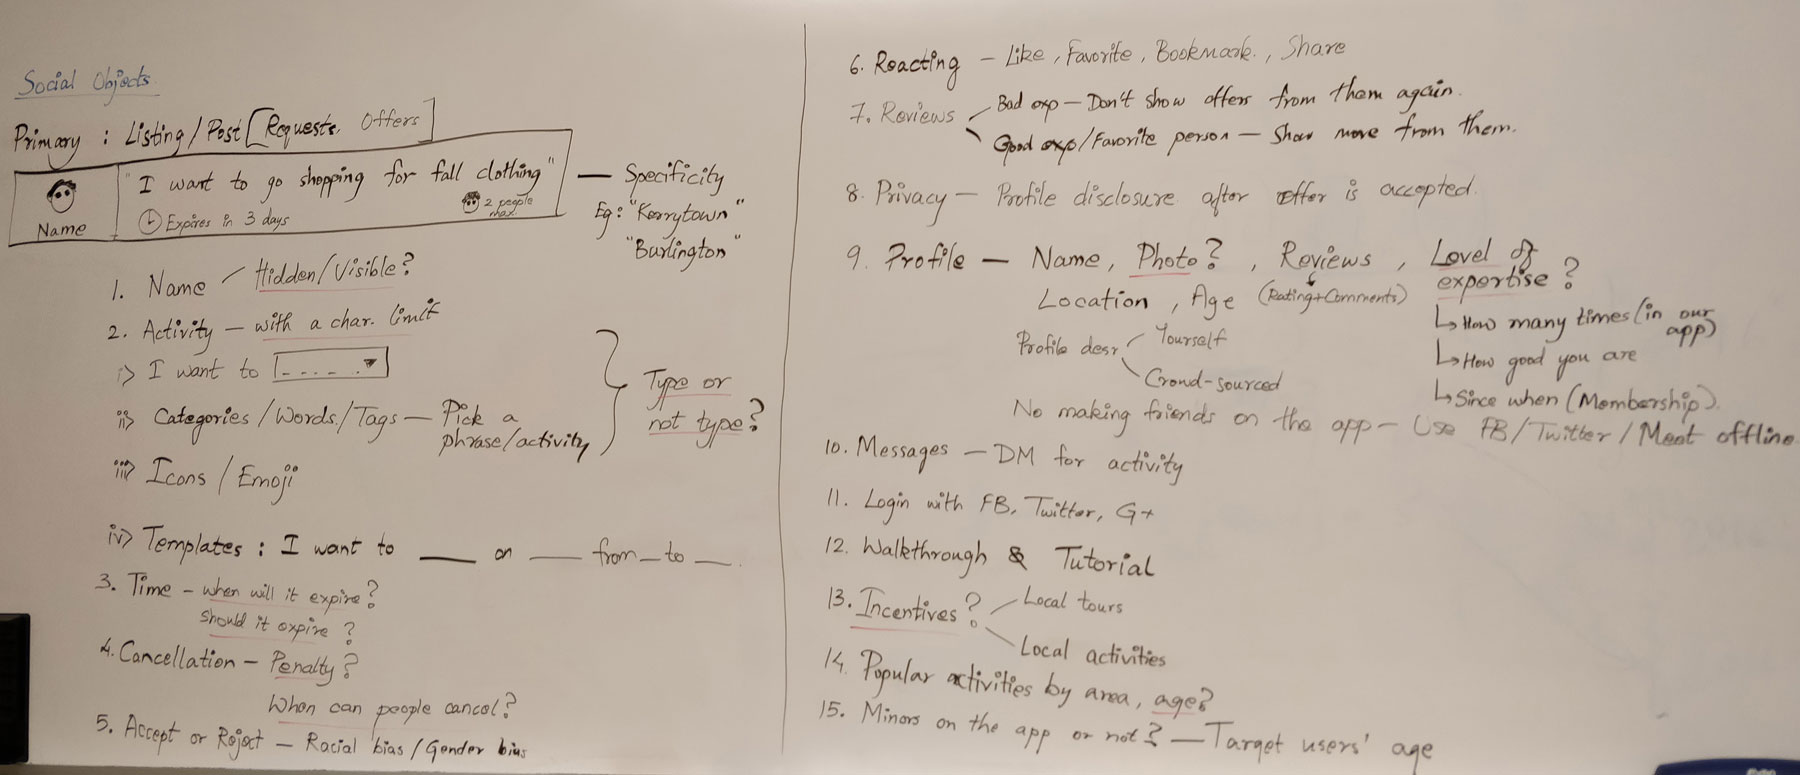 Social Objects
Primary : Listing/Post [Requests, Offers]
"I want to go shopping for fall clothing"
Name
Expires in 3 days
2 people max.
— Specificity
Eg: "Kerrytown"
"Burlington"
1. Name / Hidden/Visible?
2. Activity — with a char. limit
i> I want to [- - - - . ▾]
ii> Categories/Words/Tags — Pick a
phrase/activity
iii> Icons / Emoji
} Type or
not type?
iv> Templates : I want to ___ on ___ from _ to __.
3. Time - when will it expire?
should it expire?
4. Cancellation — Penalty?
When can people cancel?
5. Accept or Reject — Racial bias/Gender bias
6. Reacting — Like, Favorite, Bookmark, Share
7. Reviews
Bad exp — Don't show offers from them again.
Good exp/Favorite person — Show more from them.
8. Privacy — Profile disclosure after offer is accepted.
9. Profile — Name, Photo?, Reviews, Level of
expertise?
Location, Age (Rating+Comments)
↳ How many times (in our
app)
↳ How good you are
↳ Since when (Membership).
Profile desr
Yourself
Crowd-sourced
No making friends on the app — Use FB/Twitter/Meet offline
10. Messages — DM for activity
11. Login with FB, Twitter, G+
12. Walkthrough & Tutorial
13. Incentives?
Local tours
Local activities
14. Popular activities by area, age?
15. Minors on the app or not? — Target users' age